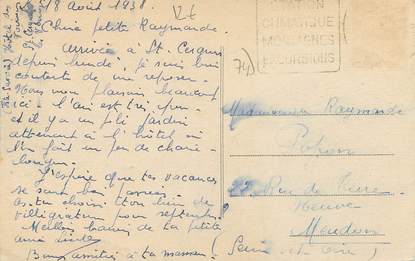 8 Août 1938.
Chère petite Raymonde.
Arrivée à St. Cergues
depuis lundi, je suis bien
contente de me reposer.
Nous nous plaisons beaucoup
ici. l'air est très pur
et il y a un joli jardin
attenant à l'hôtel où
l'on fait un peu de chaise
longue.
J'espère que tes vacances
se sont bien passées.
As-tu choisi ton lieu de
villégiature pour septembre
Meilleurs baisers de ta petite
amie
Bonnes amitiés à ta maman.
Hôtel de
St Cergues
(Hte Savoie)
STATION
CLIMATIQUE
MONTAGNES
EXCURSIONS
74)
Mademoiselle Raymonde
22 Rue de Terre
Neuve
Meudon
(Seine et Oise)